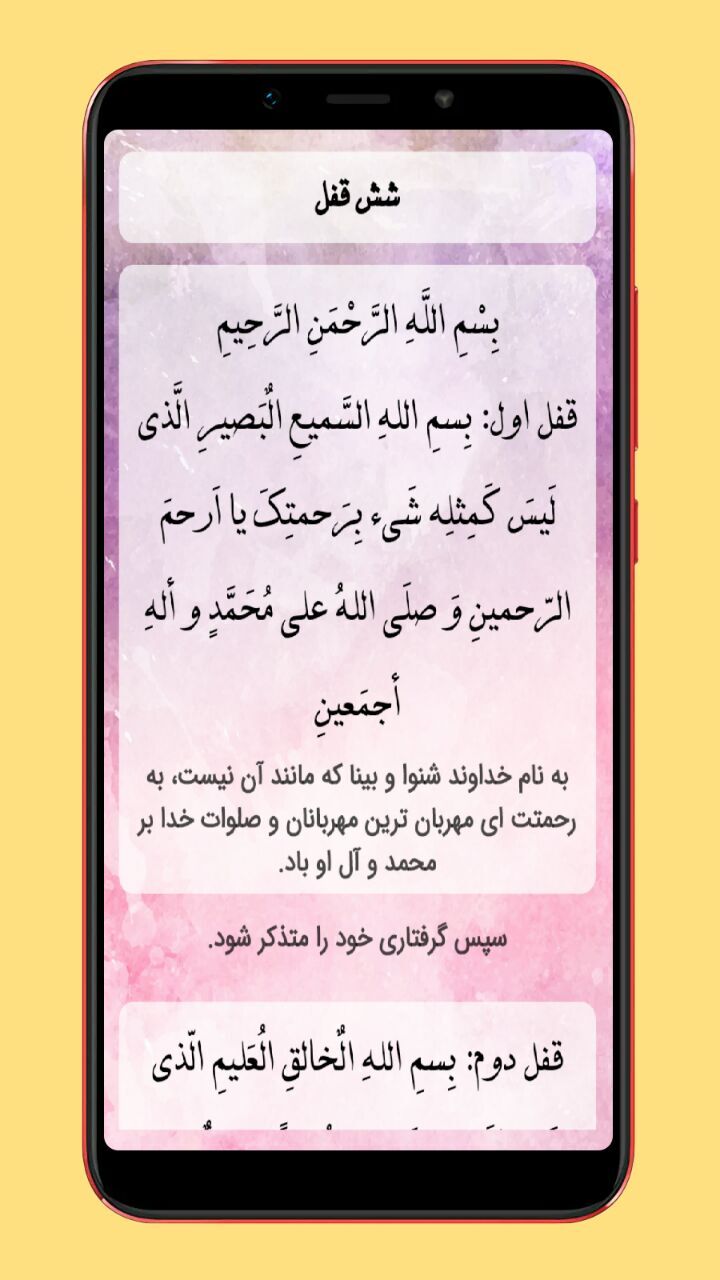 شش قفل
بِسْمِ اللَّهِ الرَّحْمَنِ الرَّحِيمِ
قفل اول: بِسمِ اللهِ السَّميعِ الْبَصيرِ الَّذی
لَيسَ كَمِثلِه شَیء بِرَحمتِکَ يا اَرحمَ
الرّحمينِ وَ صلَی اللهُ علی مُحَمَّدٍ و ألهِ
أجمَعينِ
به نام خداوند شنوا و بینا که مانند آن نیست، به
رحمتت ای مهربان ترین مهربانان و صلوات خدا بر
محمد و آل او باد.
سپس گرفتاری خود را متذکر شود.
قفل دوم: بِسمِ اللهِ الْخالقِ الْعَليمِ الّذی